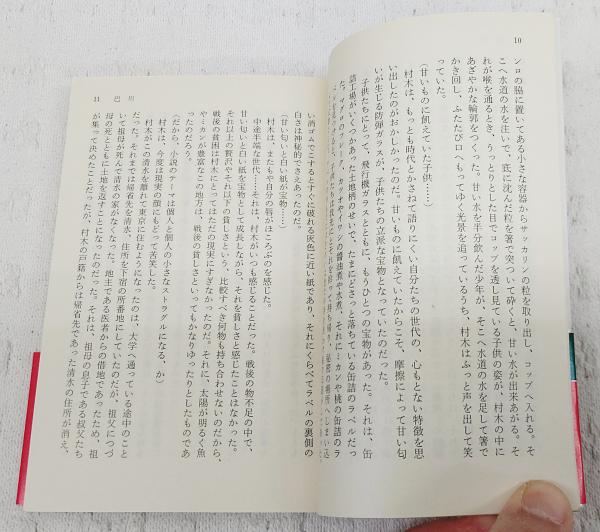 10
ンロの脇に置いてある小さな容器からサッカリンの粒を取り出し、コップへ入れる。そ
こへ水道の水を注いで、底に沈んだ粒を箸で突ついて砕くと、甘い水が出来あがる。そ
れが喉を通るとき、うっとりとした目でコップを透し見ている子供の姿が、村木の中に
あざやかな輪郭をつくった。甘い水を半分飲んだ少年が、そこへ水道の水を足して箸で
かき回し、ふたたび口へもってゆく光景を追っているうち、村木はふっと声を出して笑
っていた。
(甘いものに飢えていた子供……)
村木は、もっとも時代とかさねて語りにくい自分たちの世代の、心もとない特徴を思
い出したのがおかしかったのだ。甘いものに飢えていたからこそ、摩擦によって甘い匂
いが生じる防弾ガラスが、子供たちの立派な宝物となっていたのだった。
子供たちにとって、飛行機ガラスとともに、もうひとつの宝物があった。それは、缶
詰工場がいくつかあった土地柄のせいで、たまにどさっと落ちている缶詰のラベルだっ
た。マグロのフレーク、カツオやイワシの醤油煮や水煮、それにミカンや桃の缶詰のラ
11 巴川
い消ゴムでこするとすぐに破れる灰色に近い紙であり、それにくらべてラベルの裏側の
白さは神秘的でさえあったのだ。
(甘い匂いと白い紙が宝物……)
村木は、またもや自分の唇がほころぶのを感じた。
中途半端な世代……それは、村木がいつも感じることだった。戦後の物不足の中で、
甘い匂いと白い紙を宝物として成長しながら、それを貧しさと感じたことはなかった。
それ以上の贅沢やそれ以下の貧しさという、比較すべき何物も持ち合わせないのだから、
戦後の貧困は村木にとってはただの現実にすぎなかったのだ。それに、太陽が明るく魚
やミカンが豊富なこの地方は、戦後の貧しさといってもかなりゆったりとしたものであ
ったのだろう。
(だから、小説のテーマは個人と個人の小さなストラグルになる、か)
村木は、今度は現実の顔にもどって苦笑した。
村木がこの清水を離れて東京に住むようになったのは、大学へ通っている途中のこと
だった。それまでは帰省先を清水、住所を下宿の所番地にしていたのだが、祖父につづ
いて祖母が死んで清水の家がなくなった。地主である医者からの借地であったため、祖
母の死とともに土地を返すことになったのだった。それは、祖母の息子である叔父たち
が集って決めたことだったが、村木の戸籍からは帰省先であった清水の住所が消え、